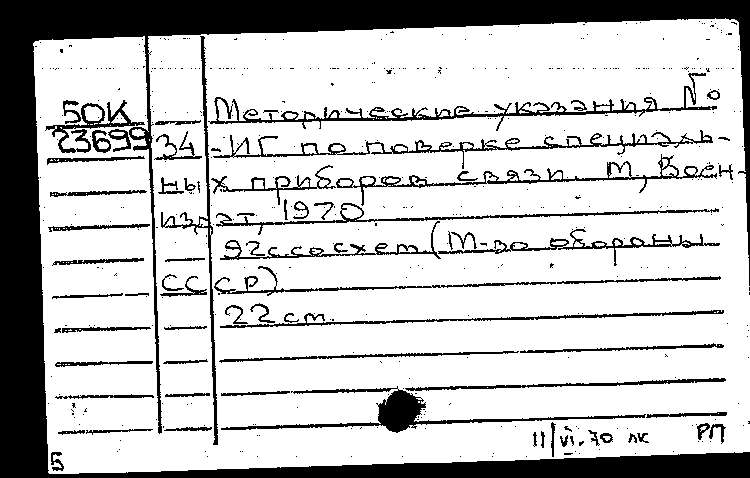 50К Методические указания №
23699 34 -ИГ по поверке специаль-
ных приборов связи. М, Воен-
издат, 1970
92с со схем (М-во обороны
СССР)
22 см.
11/VI.70 лк РП
5